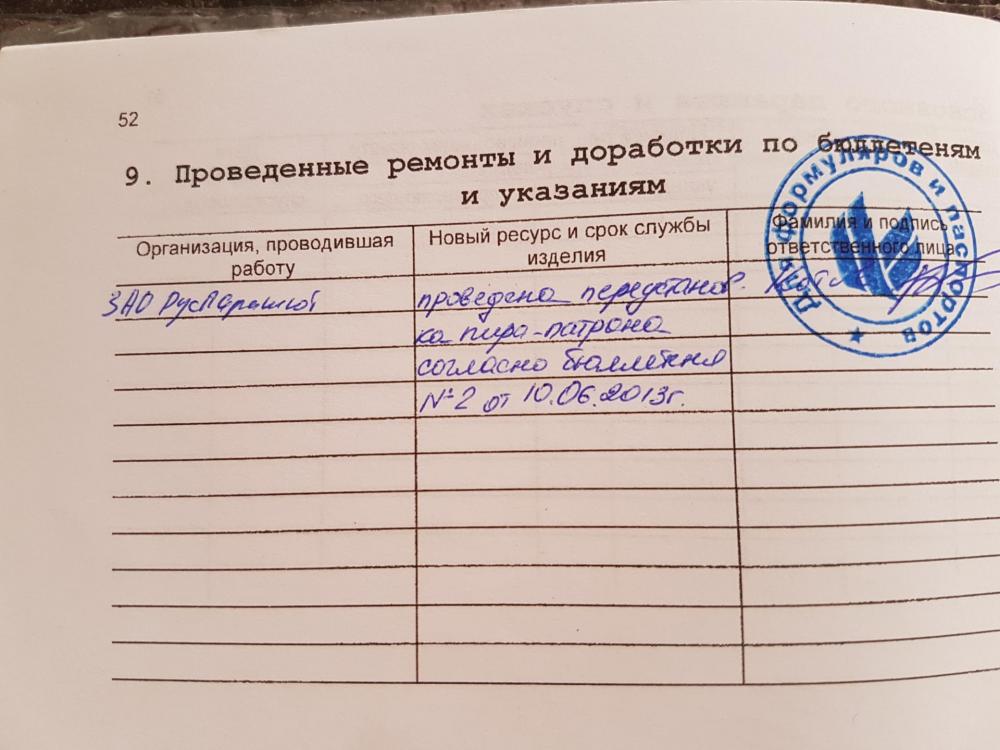 52
9. Проведенные ремонты и доработки по бюллетеням
и указаниям
Организация, проводившая
работу
Новый ресурс и срок службы
изделия
Фамилия и подпись
ответственного лица
ЗАО РусПарашют
проведена перестанов
ка пира-патрона
согласно бюллетня
№2 от 10.06.2013г.
Для формуляров и паспортов